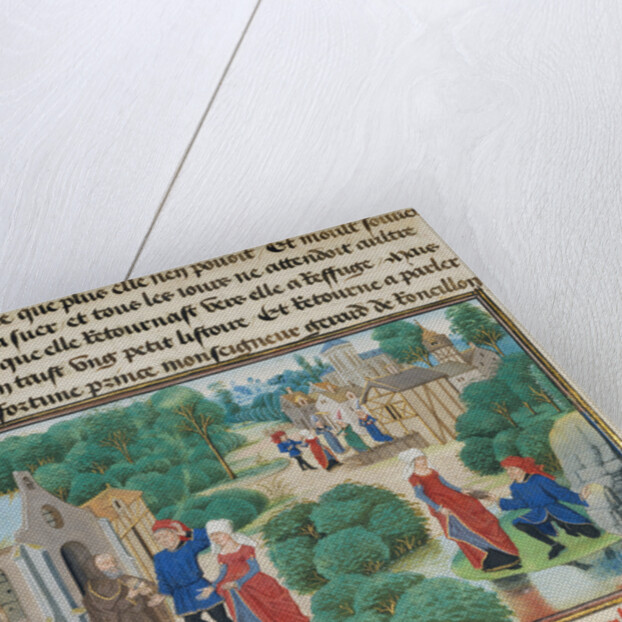 e que plus elle nen pouoit Et moult souue
a suer / et tous les iours ne attendoit aultre
que elle retournast vers elle a reffuge / Mais
n taist vng petit listoire Et retourne a parler
fortune prince monseigneur gerard de roncillon